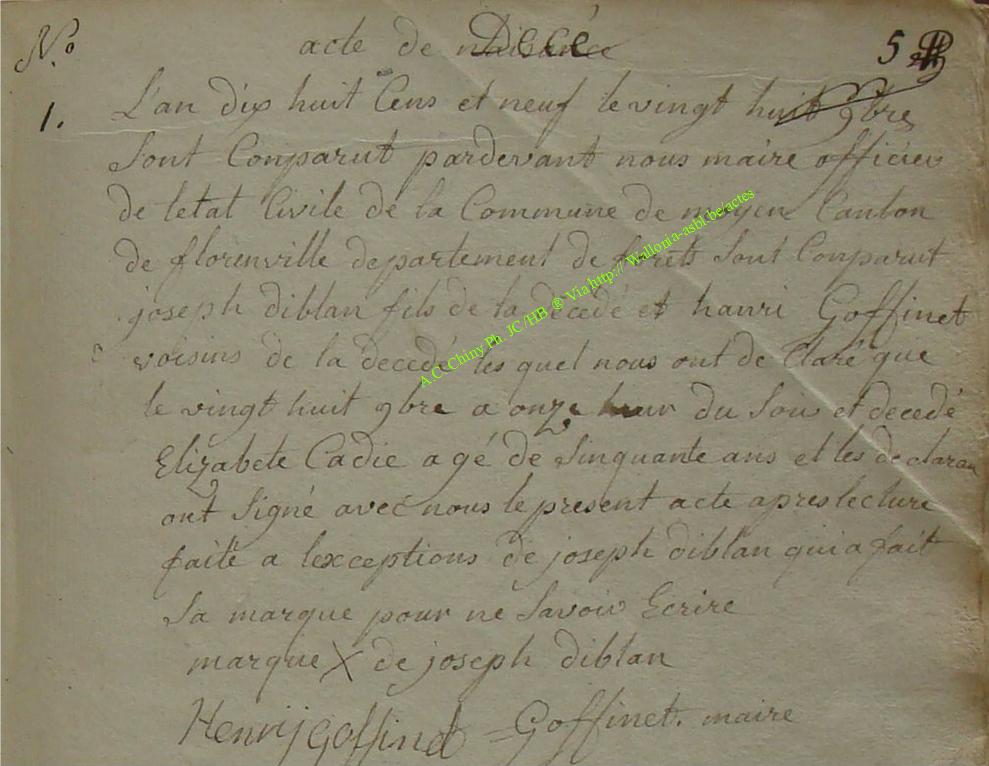 No acte de Décé 5
1. L'an dix huit Cens et neuf le vingt huit 9bre
Sont Conparut pardevant nous maire officier
de letat Civile de la Commune de moyen Canton
de florenville departement de forêts Sont Conparut
joseph diblan fils de la décedé et hanri Goffinet
voisins de la decedé les quel nous ont de Claré que
le vingt huit 9bre a onze heur du Soir et decedé
Elizabete Cadie agé de Sinquante ans et les declaran
ont Signé avec nous le present acte apres lecture
faite a lexceptions de joseph diblan qui a fait
Sa marque pour ne Savoir Ecrire
marque X de joseph diblan
Henrij Goffinet = Goffinet. maire
A.C. Chiny Ph. JC /HB ® Via http:// Wallonia-asbl.be/actes